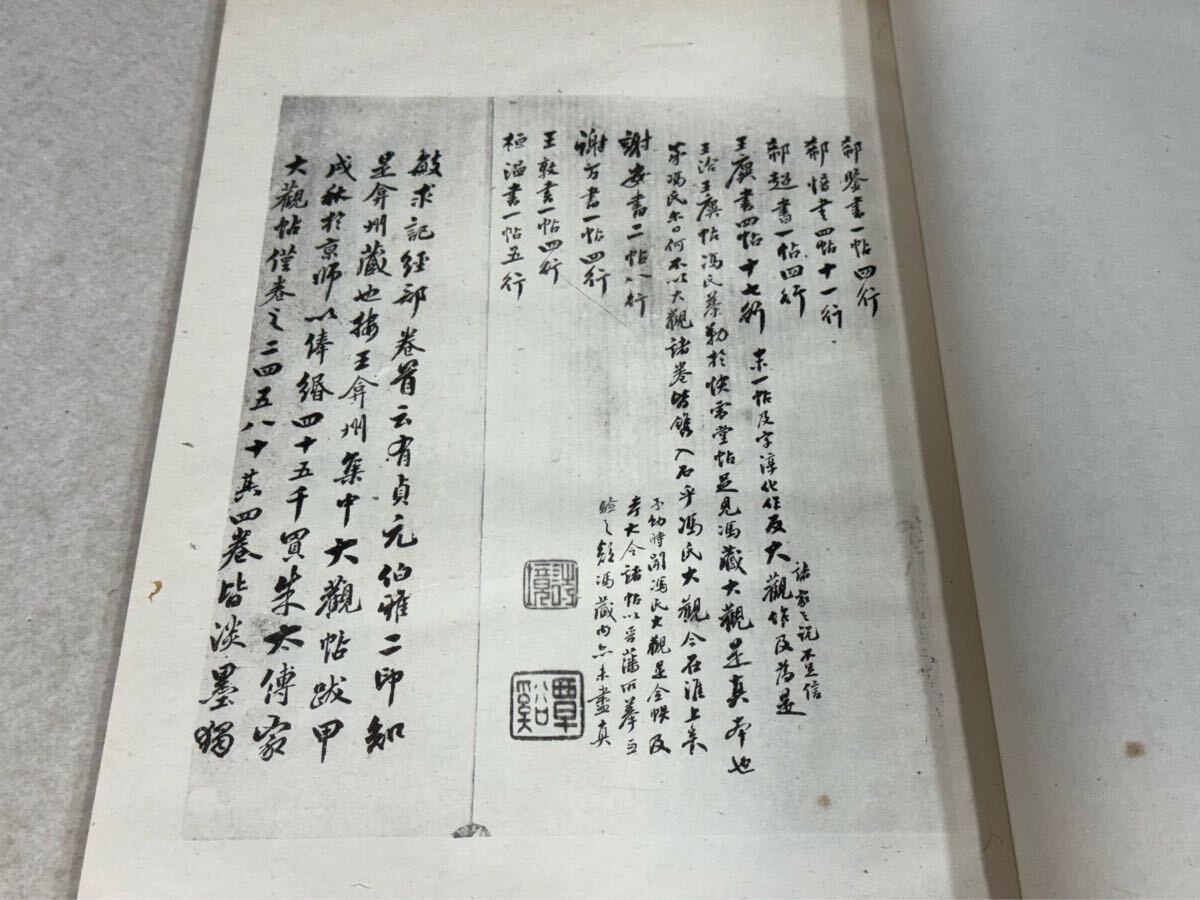 郗鑒書一帖四行
郗愔書四帖十一行
郗超書一帖四行
王廙書四帖十七行 末一帖及字淳化作反大觀作及為是
諸家之說不足信
王洽王廙帖馮氏摹勒於快雪堂帖足見馮藏大觀是真本也
馮氏尔日何不以大觀諸卷皆鐫入石乎馮氏大觀今在淮上
謝安書二帖八行
謝万書一帖四行
王敦書一帖四行
桓溫書一帖五行
幼時聞馮氏大觀是全帙及
大令諸帖以晉藩所摹
驗之馮藏內亦未盡真
覃谿
敏求記經部卷首云有貞元伯雅二印知
是弇州藏也按王弇州集中大觀帖跋甲
戌秋於京師以俸緡四十五千買朱太傅家
大觀帖僅卷之二四五八十其四卷皆淡墨獨